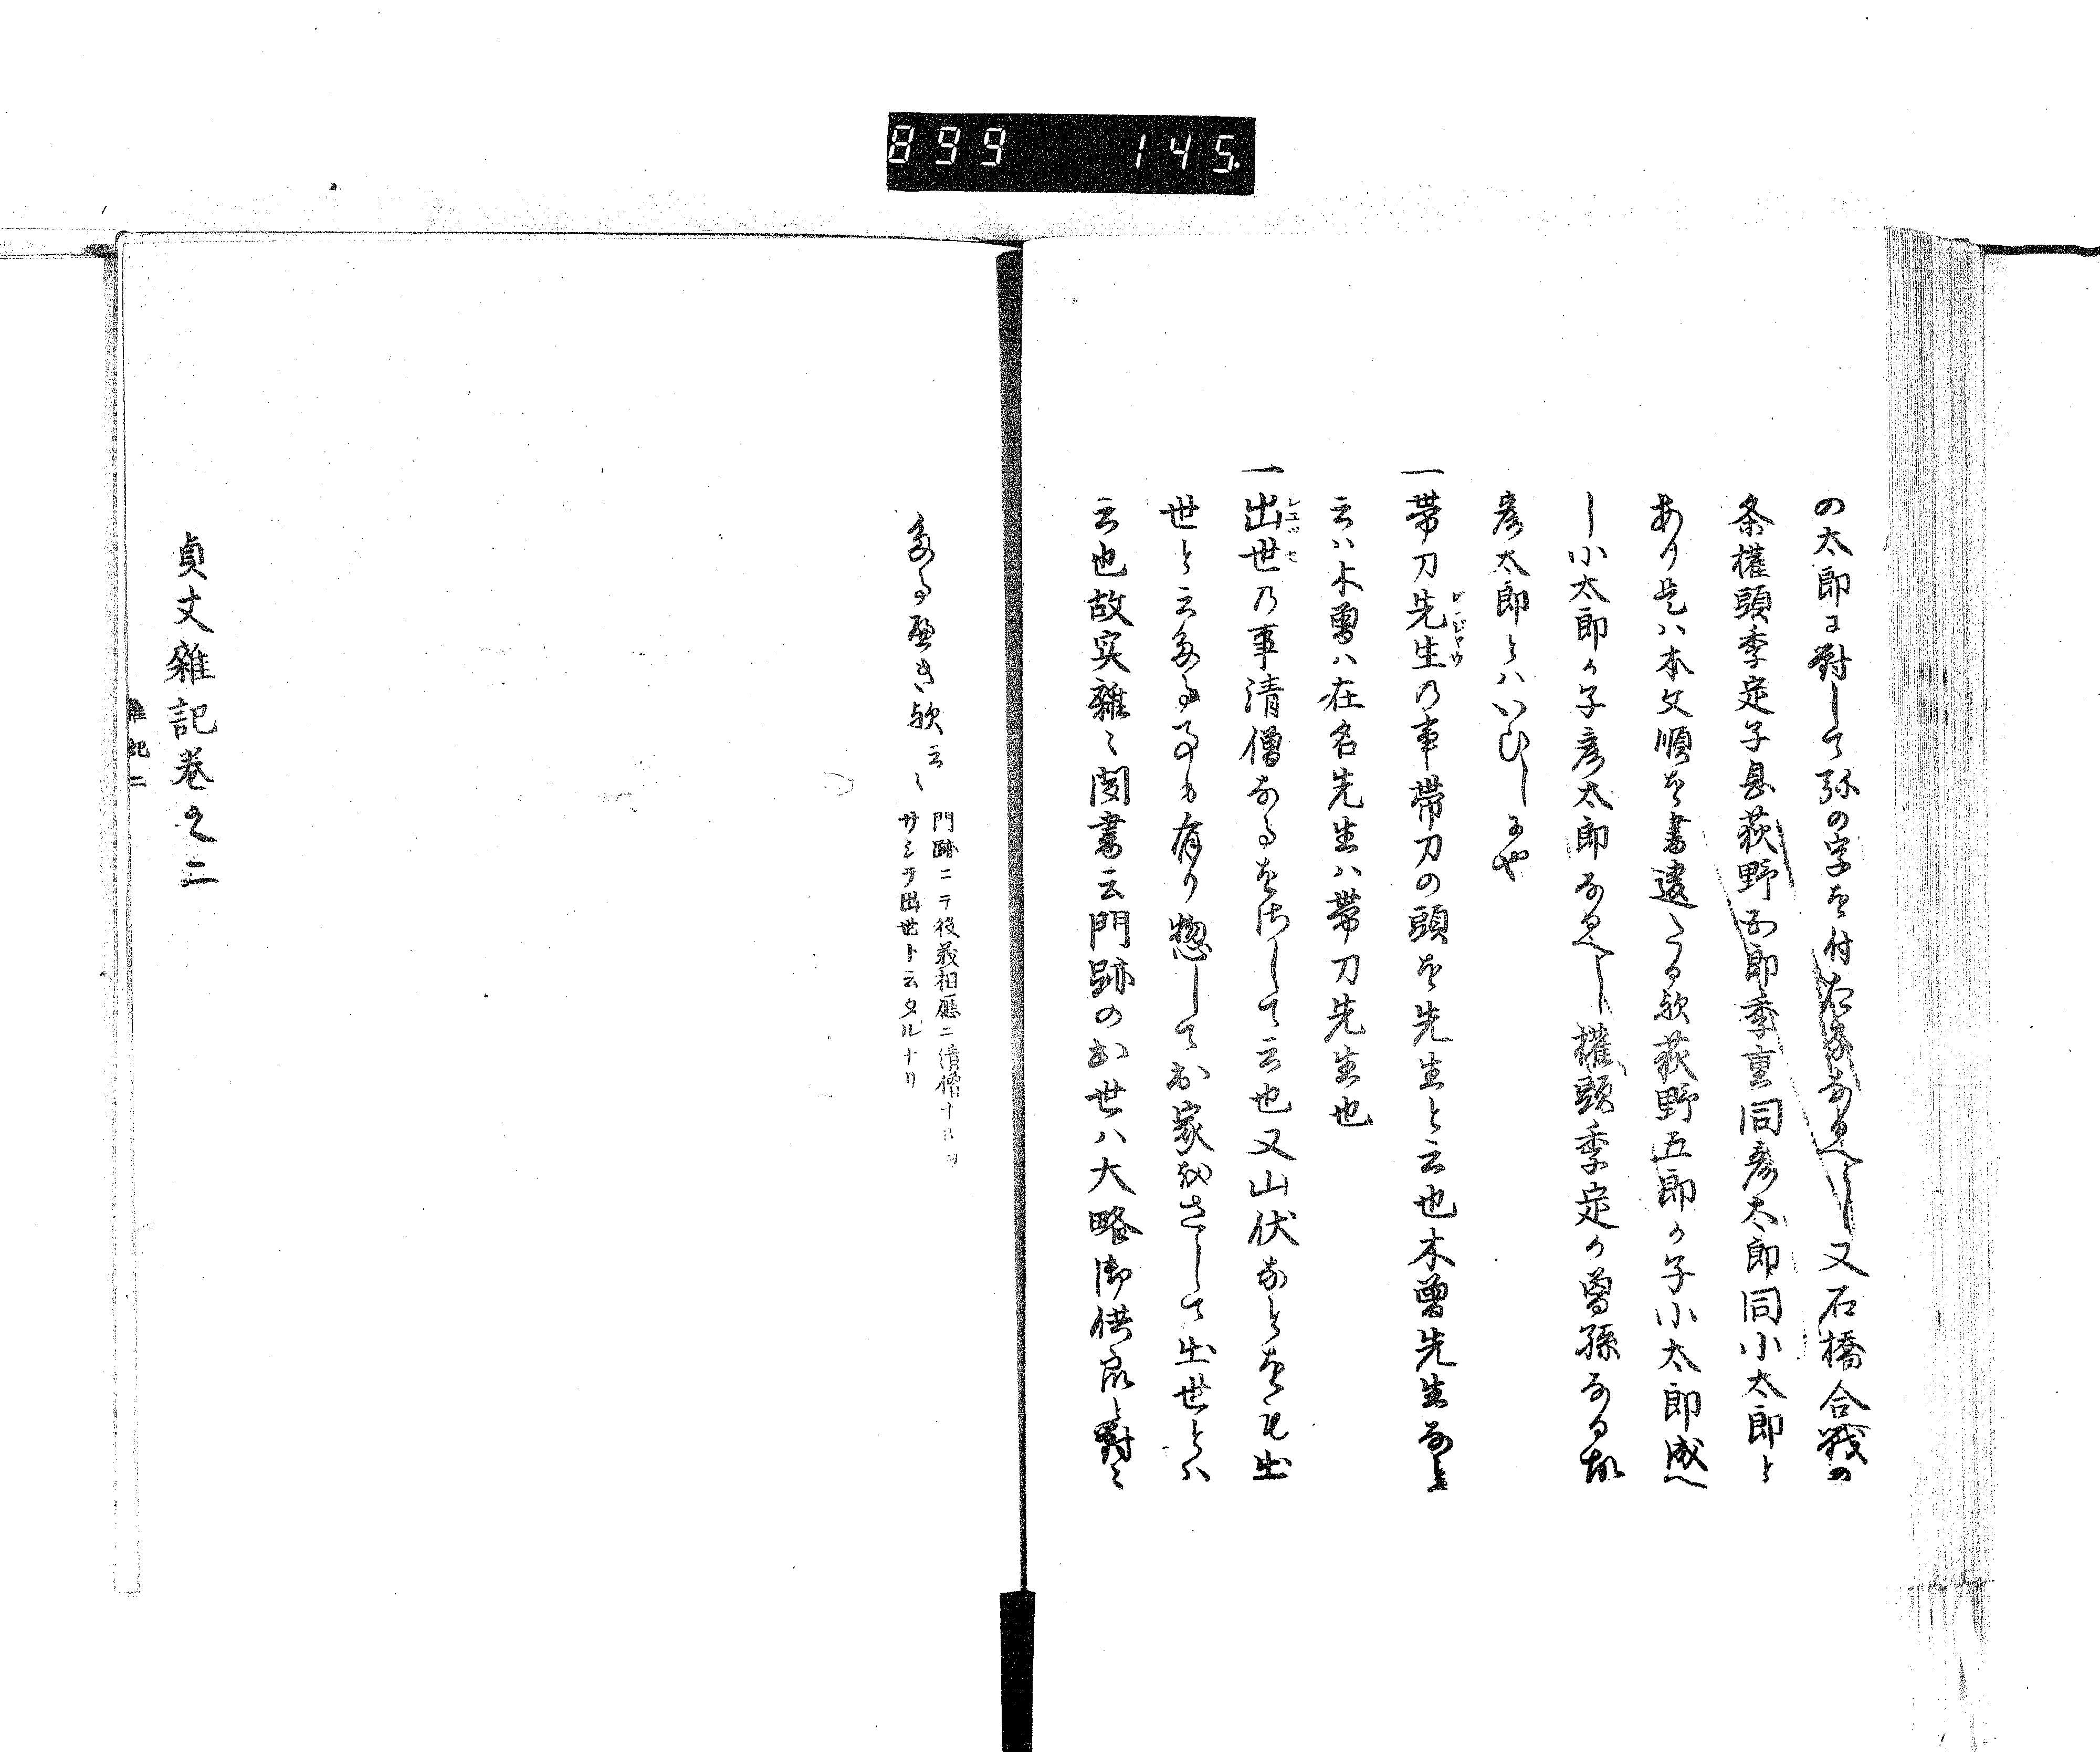 899 145.
の太郎に對して弥の字を付 又石橋合戦の
条權頭季定子息荻野五郎季重同彦太郎同小太郎と
あり是ハ本文順を書違へたる歟荻野五郎か子小太郎成へ
し小太郎か子彦太郎なるへし權頭季定か曽孫なる故
彦太郎とハいひしにや
一帯刀先生の事帯刀の頭を先生と云也木曽先生なと
云ハ木曽ハ在名先生ハ帯刀先生也
一出世の事清僧なるをさして云也又山伏なとをも出
世と云たる事も有り惣して出家をさして出世とハ
云也故実雑々聞書云門跡の出世ハ大略御供衆と對々
たるへき歟云々
門跡ニテ後義相應ニ清僧ナルヲ
サシテ出世ト云タルナリ
貞丈雜記巻之二
雜記二